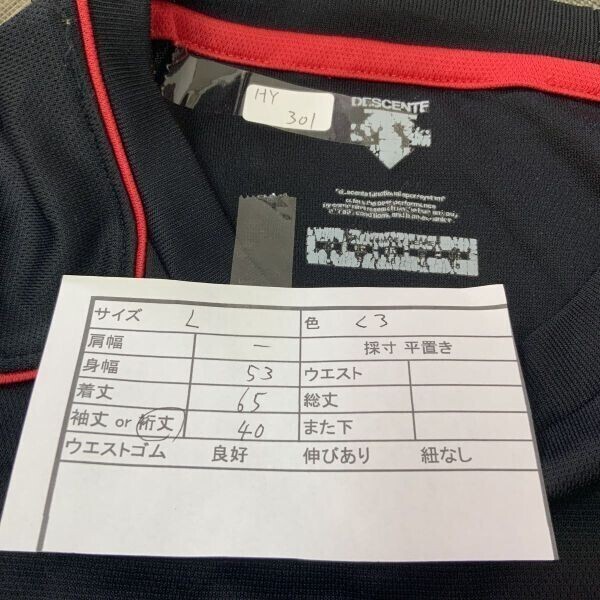 HY
301
DESCENTE
サイズ L 色 くろ
肩幅 ー 採寸 平置き
身幅 53 ウエスト
着丈 65 総丈
袖丈 or 裄丈 40 また下
ウエストゴム 良好 伸びあり 紐なし